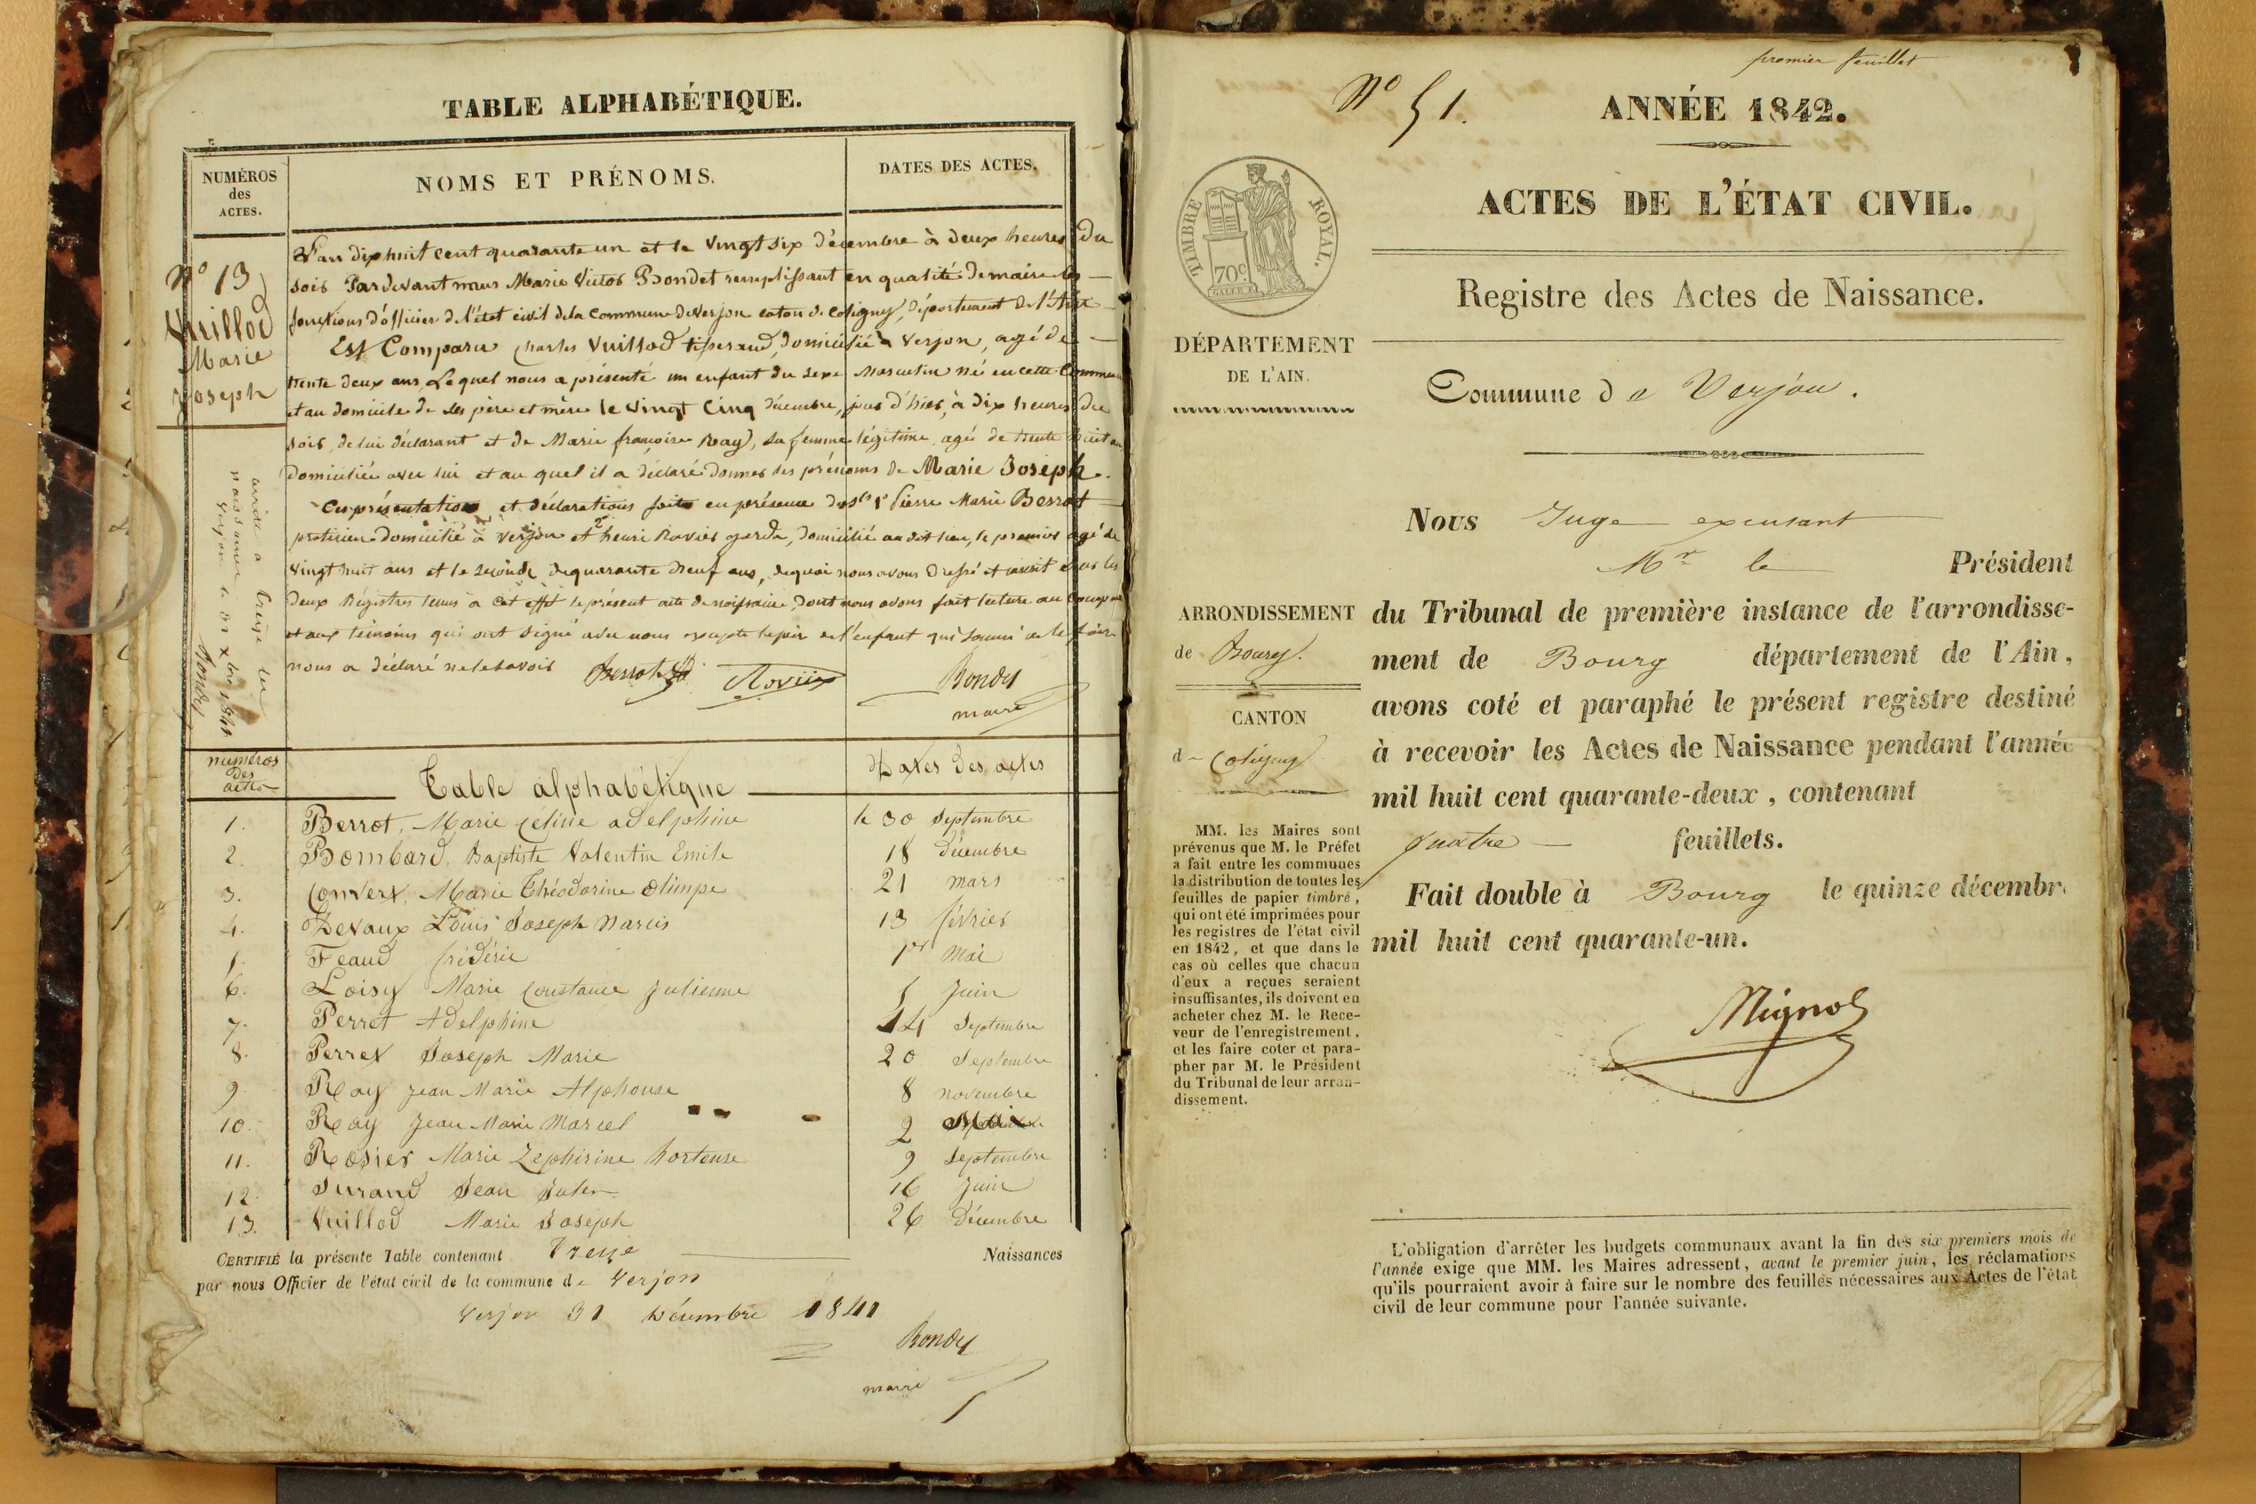 TABLE ALPHABÉTIQUE.
NUMÉROS
des
ACTES.
NOMS ET PRÉNOMS.
DATES DES ACTES.
N° 13
Vuillod
Marie
Joseph
L'an dix huit cent quarante un et le vingt six décembre à deux heures du
soir Pardevant nous Marie Victor Bondet remplissant en qualité de maire les
fonctions d'officier de l'état civil de la Commune de Verjon caton de Coligny, département de l'Ain
Est Comparu Charles Vuillod tisserand, domicilié à Verjon, agé de
trente deux ans, Lequel nous a présenté un enfant du sexe Masculin né en cette Commune
et au domicile de ses père et mère le vingt Cinq décembre, jour d'hier, à dix heures du
soir, de lui déclarant et de Marie françoise Roay, sa femme légitime, agée de trente huit ans
Domiciliée avec lui et au quel il a déclaré donner les prénoms de Marie Joseph.
Ces présentation et déclarations faite en présence des 1° Pierre Marie Berrot
praticien domicilié à Verjon et 2° henri Roviès garde, domicilié au dit lieu, le premier agé de
vingt huit ans et le seconde de quarante neuf ans, de quoi nous avons dressé et inscrit sur les
deux Régistres tenus à cet effet le présent acte de naissance, dont nous avons fait lecture au comparant
et aux témoins qui ont signé avec nous excepté le père de l'enfant qui sommé de le faire
nous a déclaré ne le savoir
Berrot
Roviès
Bondet
maire
arrêté à treize les
naissances
Verjon le 31 Xbre 1841
Bondet
numéros
des
actes
Table alphabétique
Dates des actes
1. Berrot, Marie Celine adelphine le 30 Septembre
2. Bombard, Baptiste Valentin Emile 18 Décembre
3. Convert, Marie Théodorine Olimpe 21 mars
4. Devaux Louis Joseph Narcis 13 février
5. Feaud frédéric 1er Mai
6. Loisy Marie Constance Julienne 5 Juin
7. Perret Adelphine 14 Septembre
8. Perret Joseph Marie 20 Septembre
9. Roay Jean Marie Alphonse 8 novembre
10. Roay Jean Marie Marcel 2 Mai
11. Rosier Marie Zephirine hortense 9 Septembre
12. Durand Jean Jules 16 Juin
13. Vuillod Marie Joseph 26 Décembre
CERTIFIÉ la présente Table contenant Treize Naissances
par nous Officier de l'état civil de la commune de Verjon
Verjon 31 Décembre 1841
Bondet
maire
premier feuillet
N° 51.
ANNÉE 1842.
ACTES DE L'ÉTAT CIVIL.
TIMBRE ROYAL.
70c
Registre des Actes de Naissance.
DÉPARTEMENT
DE L'AIN.
Commune de Verjon.
Nous Juge excusant
Mr le Président
ARRONDISSEMENT
de Bourg.
CANTON
de Coligny
du Tribunal de première instance de l'arrondisse-
ment de Bourg département de l'Ain,
avons coté et paraphé le présent registre destiné
à recevoir les Actes de Naissance pendant l'année
mil huit cent quarante-deux, contenant
quatre feuillets.
Fait double à Bourg le quinze décembre
mil huit cent quarante-un.
Mignot
MM. les Maires sont
prévenus que M. le Préfet
a fait entre les communes
la distribution de toutes les
feuilles de papier timbré,
qui ont été imprimées pour
les registres de l'état civil
en 1842, et que dans le
cas où celles que chacun
d'eux a reçues seraient
insuffisantes, ils doivent en
acheter chez M. le Rece-
veur de l'enregistrement,
et les faire coter et para-
pher par M. le Président
du Tribunal de leur arron-
dissement.
L'obligation d'arrêter les budgets communaux avant la fin des six premiers mois de
l'année exige que MM. les Maires adressent, avant le premier juin, les réclamations
qu'ils pourraient avoir à faire sur le nombre des feuilles nécessaires aux Actes de l'état
civil de leur commune pour l'année suivante.